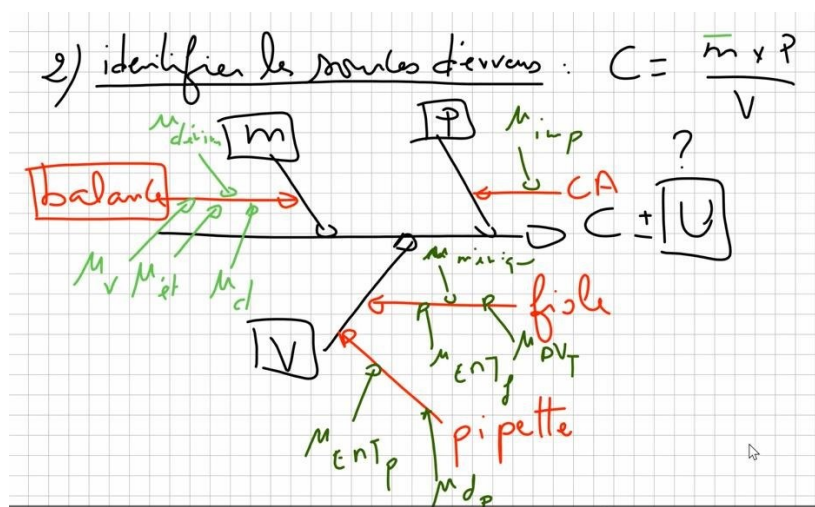 2) identifier les sources d'erreurs : C = m̅ x P / V
m
P
μ imp
?
balance
CA
C ± U
μv μét μd
μ ménisq
fiole
V
μ EMT f
μ DVT
μ EMT p
pipette
μ d p